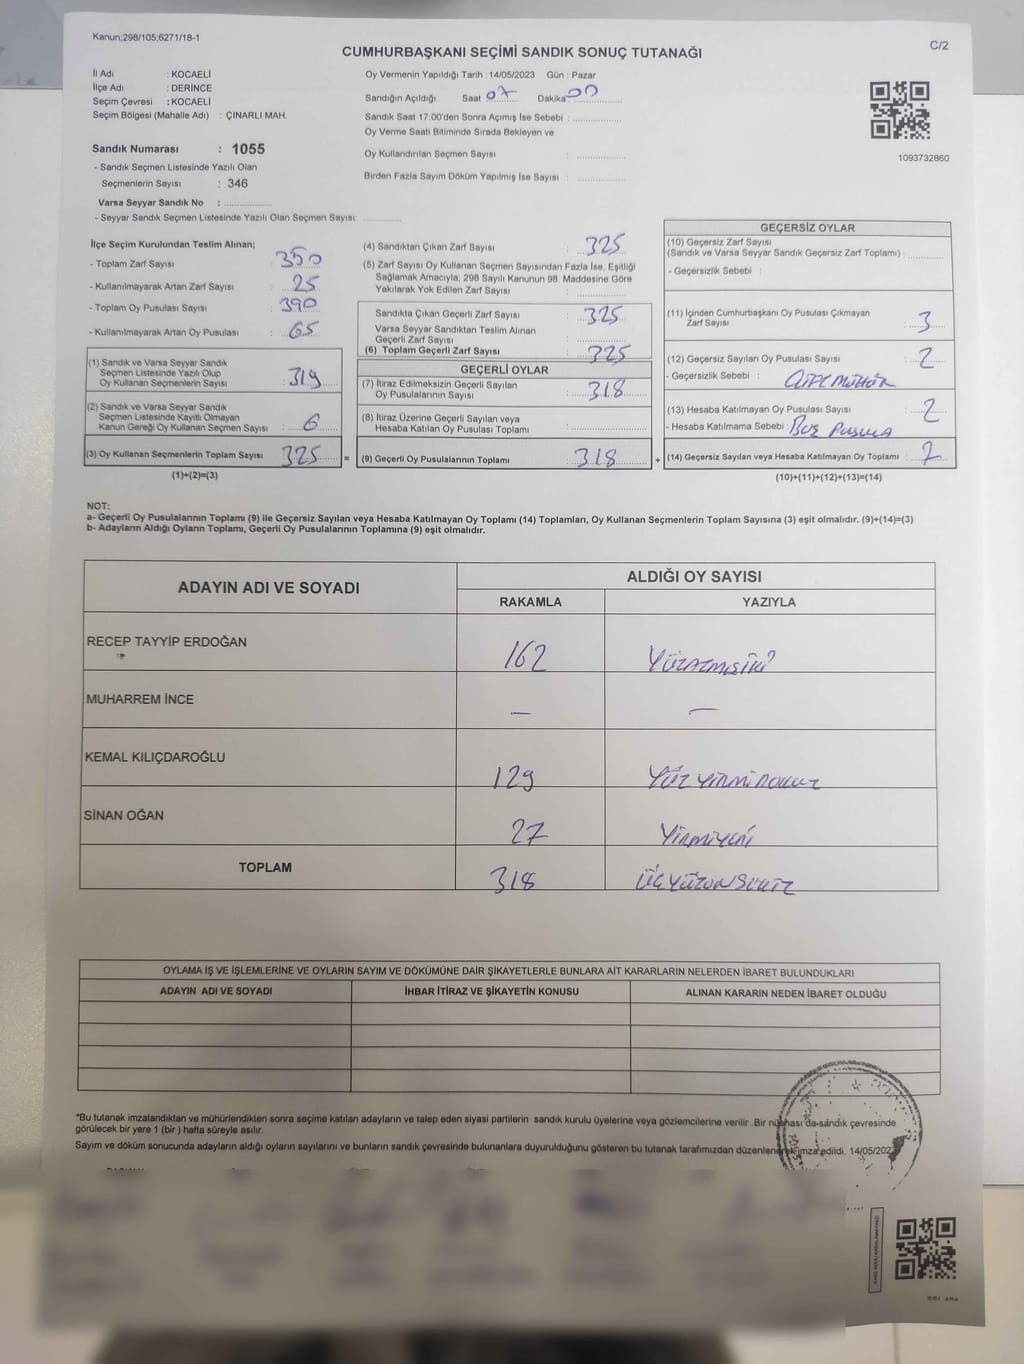 Kanun;298/105;6271/18-1
C/2
CUMHURBAŞKANI SEÇİMİ SANDIK SONUÇ TUTANAĞI
İl Adı : KOCAELİ
İlçe Adı : DERİNCE
Seçim Çevresi : KOCAELİ
Seçim Bölgesi (Mahalle Adı) : ÇINARLI MAH.
Sandık Numarası : 1055
- Sandık Seçmen Listesinde Yazılı Olan
Seçmenlerin Sayısı : 346
Varsa Seyyar Sandık No :
- Seyyar Sandık Seçmen Listesinde Yazılı Olan Seçmen Sayısı:
Oy Vermenin Yapıldığı Tarih : 14/05/2023 Gün : Pazar
Sandığın Açıldığı Saat 07 Dakika 00
Sandık Saat 17:00'den Sonra Açımış İse Sebebi :
Oy Verme Saati Bitiminde Sırada Bekleyen ve
Oy Kullandırılan Seçmen Sayısı :
Birden Fazla Sayım Döküm Yapılmış İse Sayısı :
1093732860
İlçe Seçim Kurulundan Teslim Alınan;
- Toplam Zarf Sayısı : 350
- Kullanılmayarak Artan Zarf Sayısı : 25
- Toplam Oy Pusulası Sayısı : 390
- Kullanılmayarak Artan Oy Pusulası : 65
(1) Sandık ve Varsa Seyyar Sandık
Seçmen Listesinde Yazılı Olup
Oy Kullanan Seçmenlerin Sayısı : 319
(2) Sandık ve Varsa Seyyar Sandık
Seçmen Listesinde Kayıtlı Olmayan
Kanun Gereği Oy Kullanan Seçmen Sayısı : 6
(3) Oy Kullanan Seçmenlerin Toplam Sayısı : 325 =
(1)+(2)=(3)
(4) Sandıktan Çıkan Zarf Sayısı : 325
(5) Zarf Sayısı Oy Kullanan Seçmen Sayısından Fazla İse, Eşitliği
Sağlamak Amacıyla; 298 Sayılı Kanunun 98. Maddesine Göre
Yakılarak Yok Edilen Zarf Sayısı :
Sandıkta Çıkan Geçerli Zarf Sayısı : 325
Varsa Seyyar Sandıktan Teslim Alınan
Geçerli Zarf Sayısı :
(6) Toplam Geçerli Zarf Sayısı : 325
GEÇERLİ OYLAR
(7) İtiraz Edilmeksizin Geçerli Sayılan
Oy Pusulalarının Sayısı : 318
(8) İtiraz Üzerine Geçerli Sayılan veya
Hesaba Katılan Oy Pusulası Toplamı :
(9) Geçerli Oy Pusulalarının Toplamı : 318 +
GEÇERSİZ OYLAR
(10) Geçersiz Zarf Sayısı
(Sandık ve Varsa Seyyar Sandık Geçersiz Zarf Toplamı) :
- Geçersizlik Sebebi :
(11) İçinden Cumhurbaşkanı Oy Pusulası Çıkmayan
Zarf Sayısı : 3
(12) Geçersiz Sayılan Oy Pusulası Sayısı : 2
- Geçersizlik Sebebi : ÇİFT MÜHÜR
(13) Hesaba Katılmayan Oy Pusulası Sayısı : 2
- Hesaba Katılmama Sebebi : Boş Pusula
(14) Geçersiz Sayılan veya Hesaba Katılmayan Oy Toplamı : 7
(10)+(11)+(12)+(13)=(14)
NOT:
a- Geçerli Oy Pusulalarının Toplamı (9) ile Geçersiz Sayılan veya Hesaba Katılmayan Oy Toplamı (14) Toplamları, Oy Kullanan Seçmenlerin Toplam Sayısına (3) eşit olmalıdır. (9)+(14)=(3)
b- Adayların Aldığı Oyların Toplamı, Geçerli Oy Pusulalarının Toplamına (9) eşit olmalıdır.
ADAYIN ADI VE SOYADI ALDIĞI OY SAYISI
RAKAMLA YAZIYLA
RECEP TAYYİP ERDOĞAN 162 YÜZATMIŞİKİ
MUHARREM İNCE — —
KEMAL KILIÇDAROĞLU 129 YÜZ YİRMİ DOKUZ
SİNAN OĞAN 27 YİRMİYEDİ
TOPLAM 318 ÜÇYÜZONSEKİZ
OYLAMA İŞ VE İŞLEMLERİNE VE OYLARIN SAYIM VE DÖKÜMÜNE DAİR ŞİKAYETLERLE BUNLARA AİT KARARLARIN NELERDEN İBARET BULUNDUKLARI
ADAYIN ADI VE SOYADI İHBAR İTİRAZ VE ŞİKAYETİN KONUSU ALINAN KARARIN NEDEN İBARET OLDUĞU
*Bu tutanak imzalandıktan ve mühürlendikten sonra seçime katılan adayların ve talep eden siyasi partilerin sandık kurulu üyelerine veya gözlemcilerine verilir .Bir nüshası da sandık çevresinde
görülecek bir yere 1 (bir ) hafta süreyle asılır.
Sayım ve döküm sonucunda adayların aldığı oyların sayılarını ve bunların sandık çevresinde bulunanlara duyurulduğunu gösteren bu tutanak tarafımızdan düzenlenerek imza edildi. 14/05/2023